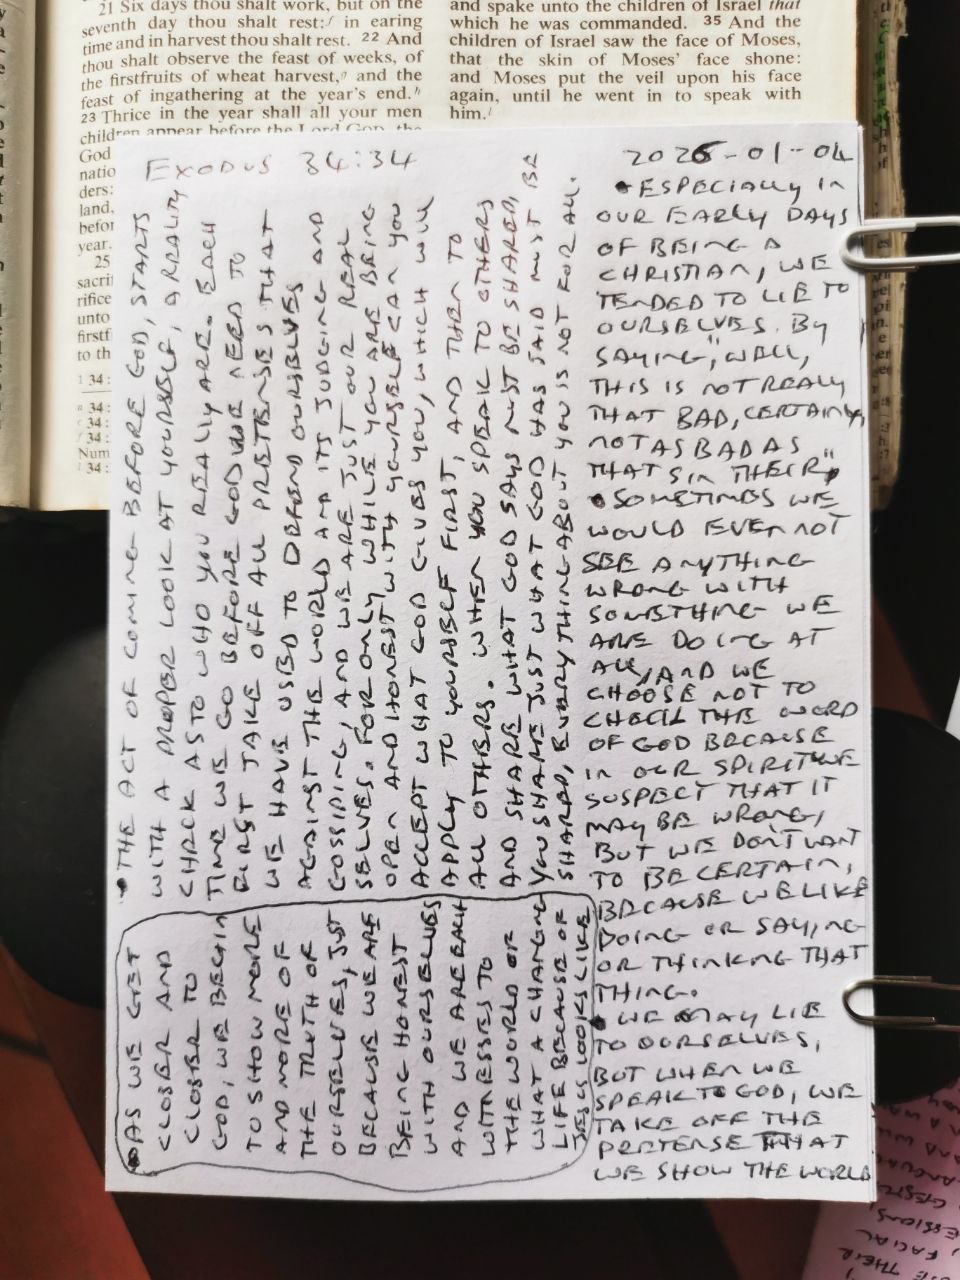 21 Six days thou shalt work, but on the
seventh day thou shalt rest: in earing
time and in harvest thou shalt rest. 22 And
thou shalt observe the feast of weeks, of
the firstfruits of wheat harvest, and the
feast of ingathering at the year's end.
23 Thrice in the year shall all your men
children appear before the Lord God, the
God
natio
ders:
land,
befor
year.
25
sacri
rifice
unto
firstf
to th
34:
34:
34:
34:
Num
34:
and spake unto the children of Israel that
which he was commanded. 35 And the
children of Israel saw the face of Moses,
that the skin of Moses' face shone:
and Moses put the veil upon his face
again, until he went in to speak with
him.
EXODUS 34:34
2026-01-04
• THE ACT OF COMING BEFORE GOD, STARTS
WITH A PROPER LOOK AT YOURSELF, A REALITY
CHECK AS TO WHO YOU REALLY ARE. EACH
TIME WE GO BEFORE GOD WE NEED TO
FIRST TAKE OFF ALL PRETENSES THAT
WE HAVE USED TO DEFEND OURSELVES
AGAINST THE WORLD AND ITS JUDGING AND
GOSSIPING, AND WE ARE JUST OUR REAL
SELVES. FOR ONLY WHILE YOU ARE BEING
OPEN AND HONEST WITH YOURSELF CAN YOU
ACCEPT WHAT GOD GIVES YOU, WHICH WILL
APPLY TO YOURSELF FIRST, AND THEN TO
ALL OTHERS. WHEN YOU SPEAK TO OTHERS
AND SHARE WHAT GOD SAYS MUST BE SHARED,
YOU SHARE JUST WHAT GOD HAS SAID MUST BE
SHARED, EVERYTHING ABOUT YOU IS NOT FOR ALL.
• AS WE GET
CLOSER AND
CLOSER TO
GOD, WE BEGIN
TO SHOW MORE
AND MORE OF
THE TRUTH OF
OURSELVES, JUST
BECAUSE WE ARE
BEING HONEST
WITH OURSELVES
AND WE ARE EACH
WITNESSES TO
THE WORLD OF
WHAT A CHANGING
LIFE BECAUSE OF
JESUS LOOKS LIKE
• ESPECIALLY IN
OUR EARLY DAYS
OF BEING A
CHRISTIAN, WE
TENDED TO LIE TO
OURSELVES. BY
SAYING, "WELL,
THIS IS NOT REALLY
THAT BAD, CERTAINLY
NOT AS BAD AS
THAT SIN THEIR"
• SOMETIMES WE
WOULD EVEN NOT
SEE ANYTHING
WRONG WITH
SOMETHING WE
ARE DOING AT
ALL, AND WE
CHOOSE NOT TO
CHECK THE WORD
OF GOD BECAUSE
IN OUR SPIRIT WE
SUSPECT THAT IT
MAY BE WRONG,
BUT WE DON'T WANT
TO BE CERTAIN,
BECAUSE WE LIKE
DOING OR SAYING
OR THINKING THAT
THING.
• WE MAY LIE
TO OURSELVES,
BUT WHEN WE
SPEAK TO GOD, WE
TAKE OFF THE
PRETENSE THAT
WE SHOW THE WORLD